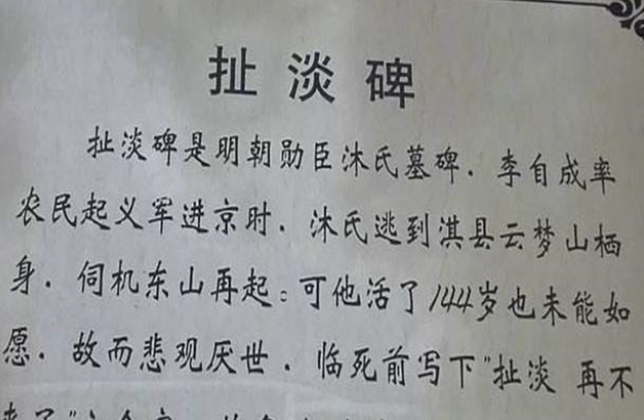 扯淡碑
扯淡碑是明朝勋臣沐氏墓碑.李自成率
农民起义军进京时.沐氏逃到淇县云梦山栖
身.伺机东山再起:可他活了144岁也未能如
愿.故而悲观厌世.临死前写下"扯淡 再不